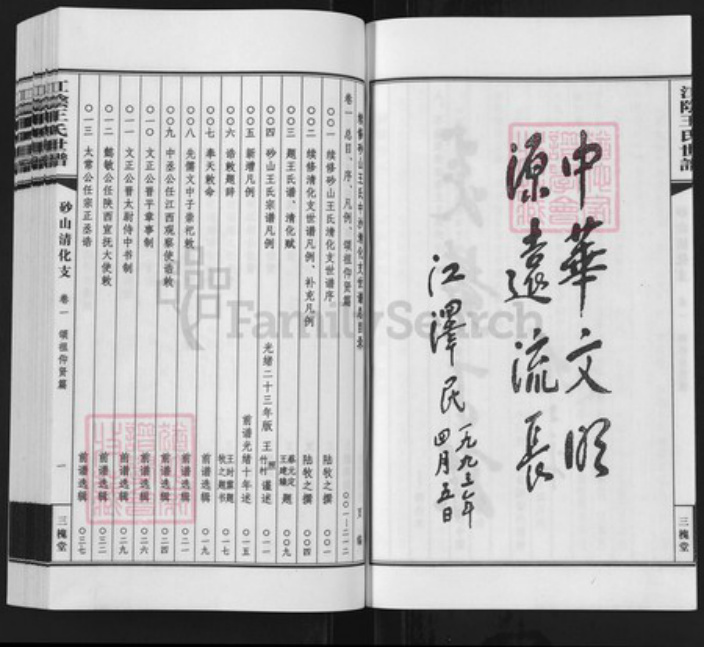 江陰王氏世譜
三槐堂
中華文明
源遠流長
江澤民
一九九三年
四月五日
续修砂山王氏中沙清化支世谱总目录
页编
卷一 总目、序、凡例、颂祖仰贤篇 〇〇一-二一二
〇〇一 续修砂山王氏清化支世谱序 陆牧之撰 〇〇一
〇〇二 续修清化支世谱凡例、补充凡例 陆牧之撰 〇〇四
〇〇三 题王氏谱、清化赋 蔡元定 王建镛 题 〇〇九
〇〇四 砂山王氏宗谱凡例 光绪二十三年版 王 熙 竹村 谨述 〇一一
〇〇五 新增凡例 前谱光绪十年述 〇一五
〇〇六 诰敕题辞 王时霖题 牧之题书 〇一七
〇〇七 奉天敕命 前谱选辑 〇一九
〇〇八 先儒文中子崇祀敕 前谱选辑 〇二一
〇〇九 中丞公任江西观察使诰敕 前谱选辑 〇二四
〇一〇 文正公晋平章事制 前谱选辑 〇二六
〇一一 文正公晋太尉侍中书制 前谱选辑 〇二九
〇一二 懿敏公任陕西宣抚大使敕 前谱选辑 〇三二
〇一三 太常公任宗正丞诰 前谱选辑 〇三七
江陰王氏世譜
砂山清化支
卷一 颂祖仰贤篇
一
三槐堂
FamilySearch